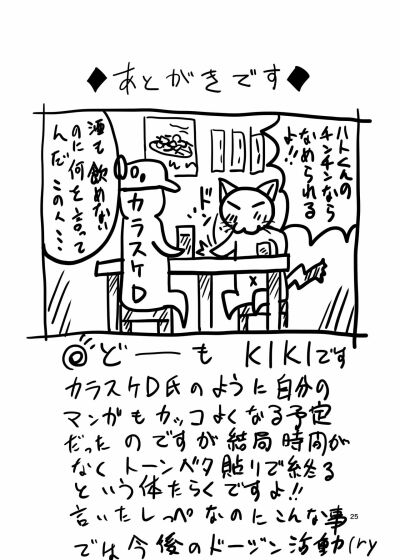 ◆あとがきです◆
ハトくんの
チンチンなら
なめられる
よ!!
酒も飲めない
のに何を言って
んだ
この人・・・
カラスケD
ドン
@どーも KIKIです
カラスケD氏のように自分の
マンガもカッコよくなる予定
だったのですが結局時間が
なくトーンベタ貼りで終る
という体たらくですよ!!
言いたしっぺなのにこんな事
では今後のドージン活動(ry
25